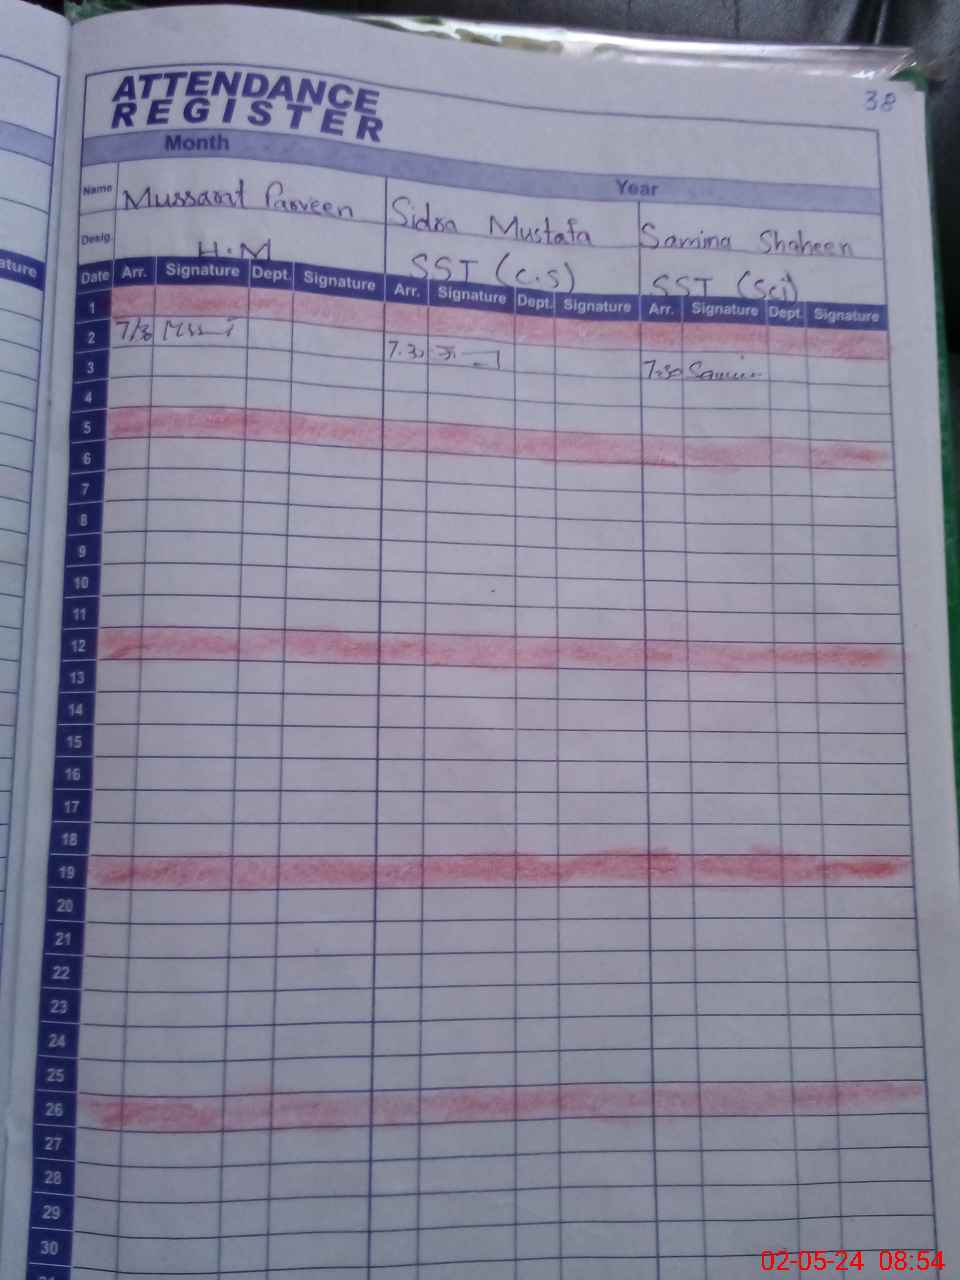 38
ATTENDANCE
REGISTER
Month
Year
Name Mussarat Parveen Sidra Mustafa Samina Shaheen
Desig. H.M SST (C.S) SST (Sci)
ature
Date Arr. Signature Dept. Signature Arr. Signature Dept. Signature Arr. Signature Dept. Signature
1
2 7/30 7.30 7.30 Samina
3
4
5
6
7
8
9
10
11
12
13
14
15
16
17
18
19
20
21
22
23
24
25
26
27
28
29
30
31
02-05-24 08:54